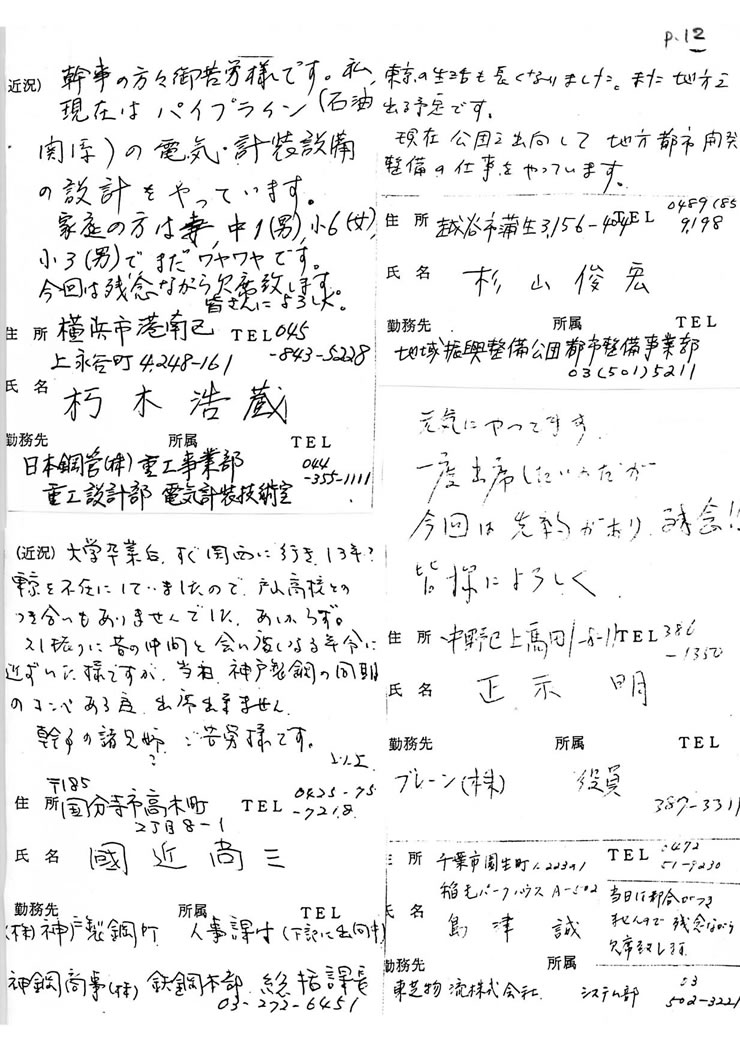 p.12
近況) 幹事の方々御苦労様です。私、
現在は パイプライン (石油
関係) の 電気・計装設備
の 設計 を やって います。
家庭の方は 妻, 中1(男), 小6(女),
小3(男)で まだ ワヤワヤ です。
今回は残念ながら欠席致します。
皆さんに よろしく。
住 所 横浜市港南区 TEL 045
上永谷町 4,248-161 -843-5228
氏 名 朽 木 浩 蔵
勤務先 所属 TEL
日本鋼管(株) 重工事業部 044
重工設計部 電気計装技術室 -355-1111
(近況) 大学卒業后, すぐ関西に行き, 13年?
東京を不在にしていましたので、戸山高校との
つき合いもありませんでした。あしからず。
久し振りに昔の仲間と会い度くなる年令に
近ずいた様ですが、当日, 神戸製鋼の同期
のコンペある為, 出席出来ません。
幹事の諸兄姉 ご苦労様です。
?
以上
〒185
住 所 国分寺市高木町 TEL 0425-75
2丁目8-1 -7218
氏 名 國 近 尚 三
勤務先 所属 TEL
(株)神戸製鋼所 人事課付 (下記に出向中)
神鋼商事(株) 鉄鋼本部 総括課長
03-272-6451
東京の生活も長くなりました。また地方に
出る予定です。
現在 公団に出向して 地方都市開発
整備の仕事をやっています。
住 所 越谷市蒲生3,156-404 TEL 0489(85)
9198
氏 名 杉 山 俊 宏
勤務先 所属 TEL
地域振興整備公団都市整備事業部
03(501)5211
元気にやってます.
一度出席したいのだが
今回は 先約があり, 残念!!
皆様によろしく
住 所 中野区上高田1-8-11 TEL 386
-1350
氏 名 正 示 明
勤務先 所属 TEL
ブレーン(株) 役員
387-3311
住 所 千葉市園生町1,223の1 TEL 0472
稲毛パークハウス A-502 51-9230
氏 名 島 津 誠
当日は都合がつき
ませんので 残念ながら
欠席致します
勤務先 所属
東芝物流株式会社. システム部 03
502-3221